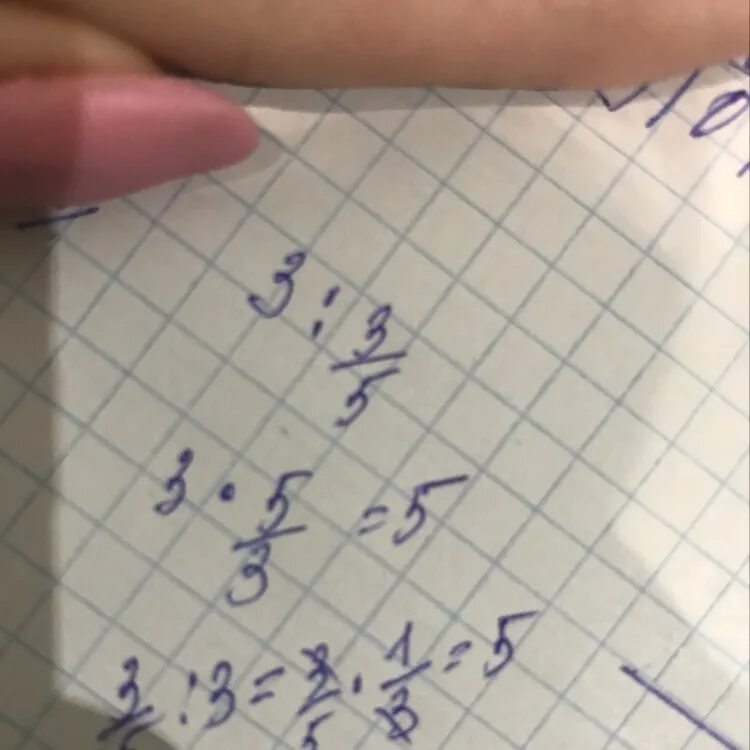 3 : 3/5
3 · 5/3 = 5
3/5 : 3 = 3/5 · 1/3 = 5